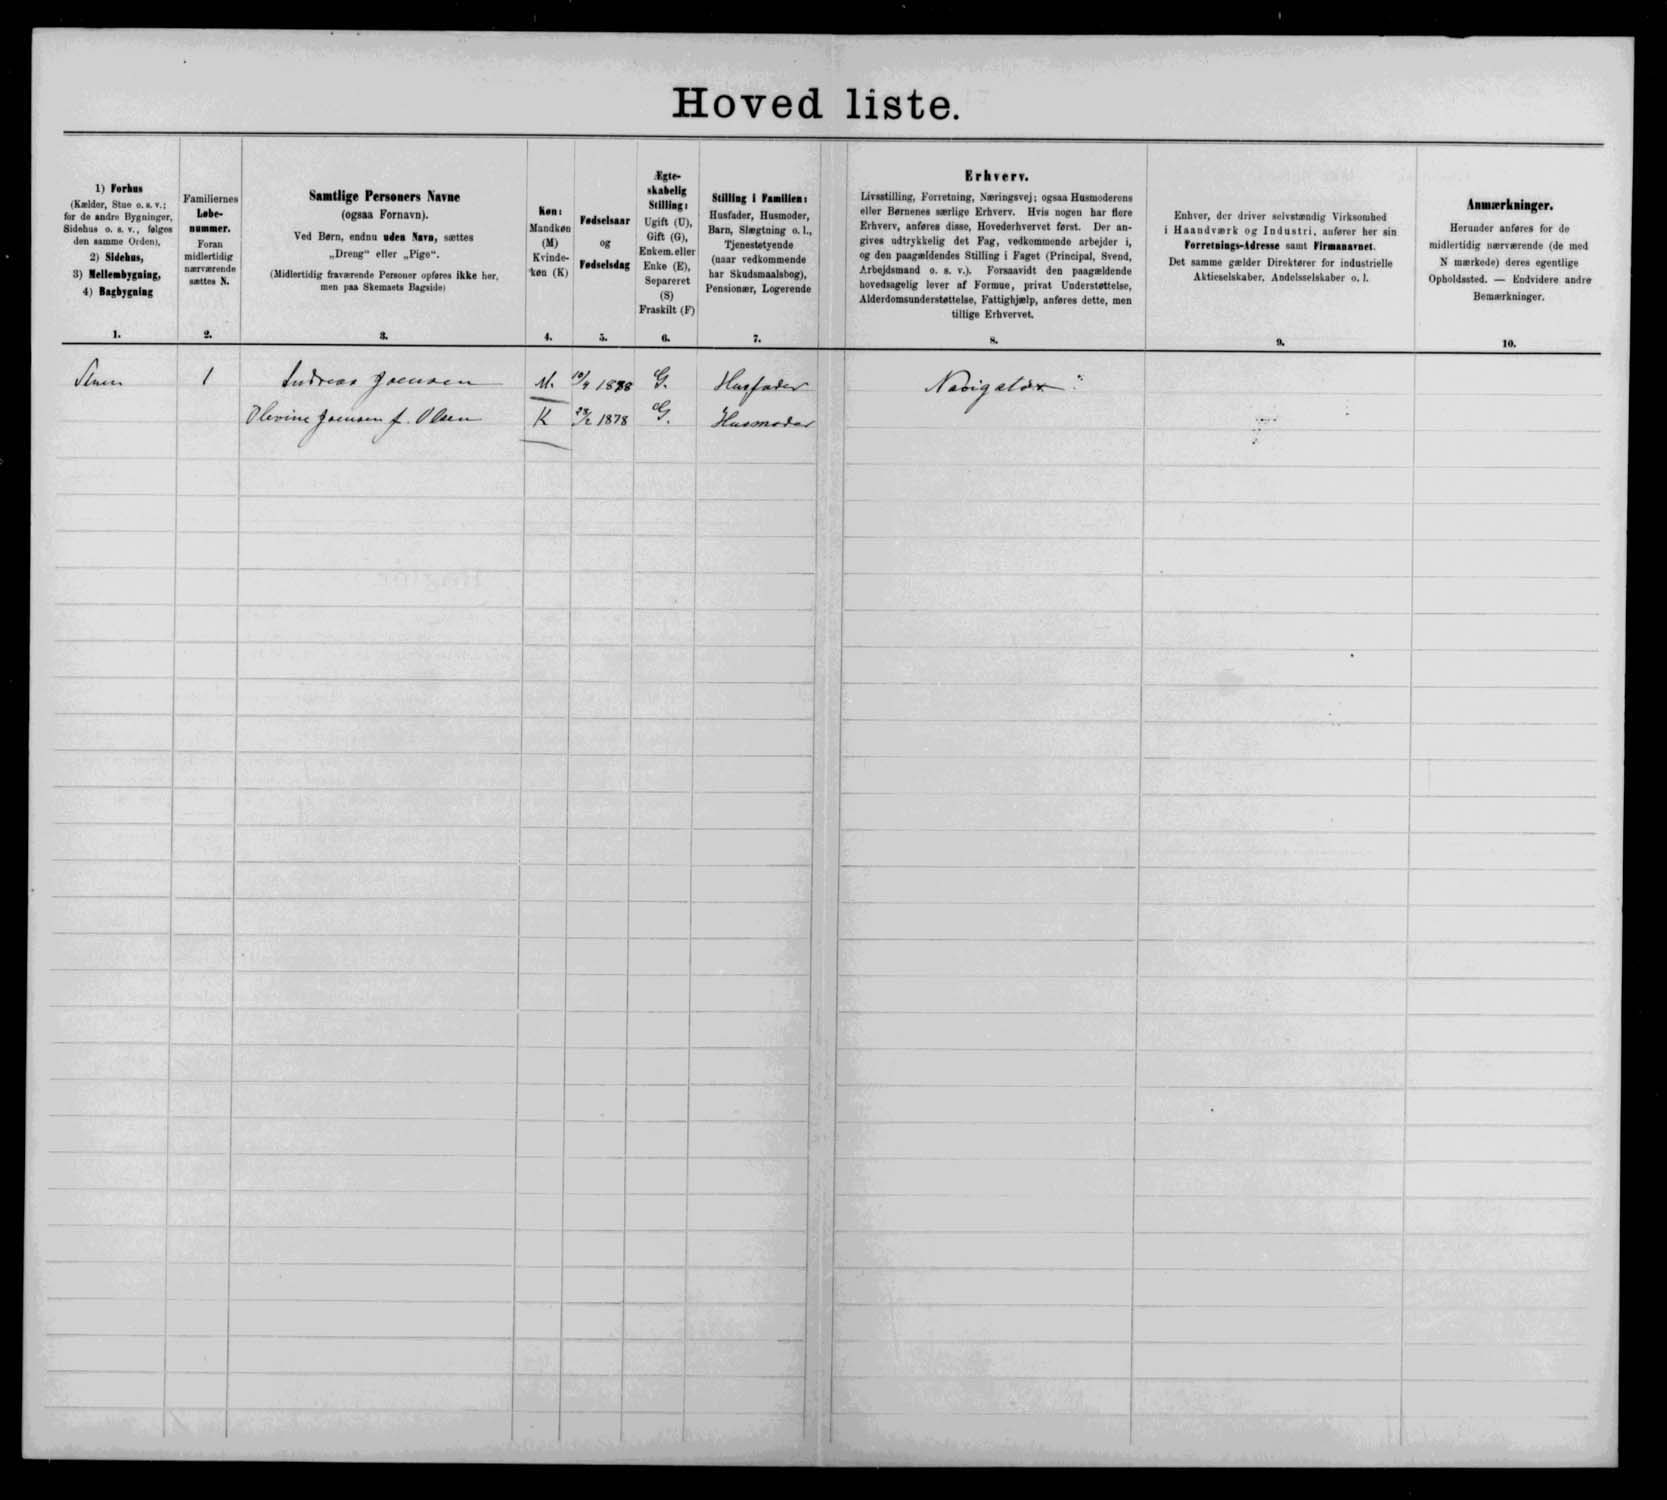 Hoved liste.
1) Forhus
(Kælder, Stue o. s. v.;
for de andre Bygninger,
Sidehus o. s. v., følges
den samme Orden),
2) Sidehus,
3) Mellembygning,
4) Bagbygning
1.
Familiernes
Løbe-
nummer.
Foran
midlertidig
nærværende
sættes N.
2.
Samtlige Personers Navne
(ogsaa Fornavn).
Ved Børn, endnu uden Navn, sættes
„Dreng“ eller „Pige“.
(Midlertidig fraværende Personer opføres ikke her,
men paa Skemaets Bagside)
3.
Køn:
Mandkøn
(M)
Kvinde-
køn (K)
4.
Fødselsaar
og
Fødselsdag
5.
Ægte-
skabelig
Stilling:
Ugift (U),
Gift (G),
Enkem. eller
Enke (E),
Separeret
(S)
Fraskilt (F)
6.
Stilling i Familien:
Husfader, Husmoder,
Barn, Slægtning o. l.,
Tjenestetyende
(naar vedkommende
har Skudsmaalsbog),
Pensionær, Logerende
7.
Erhverv.
Livsstilling, Forretning, Næringsvej; ogsaa Husmoderens
eller Børnenes særlige Erhverv. Hvis nogen har flere
Erhverv, anføres disse, Hovederhvervet først. Der an-
gives udtrykkelig det Fag, vedkommende arbejder i,
og den paagældendes Stilling i Faget (Principal, Svend,
Arbejdsmand o. s. v.). Forsaavidt den paagældende
hovedsagelig lever af Formue, privat Understøttelse,
Alderdomsunderstøttelse, Fattighjælp, anføres dette, men
tillige Erhvervet.
8.
Enhver, der driver selvstændig Virksomhed
i Haandværk og Industri, anfører her sin
Forretnings-Adresse samt Firmanavnet.
Det samme gælder Direktører for industrielle
Aktieselskaber, Andelsselskaber o. l.
9.
Anmærkninger.
Herunder anføres for de
midlertidig nærværende (de med
N mærkede) deres egentlige
Opholdssted. — Endvidere andre
Bemærkninger.
10.
Stuen 1 Andreas Joensen M. 10/4 1878 G. Husfader Navigatør
Olevine Joensen f. Olsen K 1878 G. Husmoder